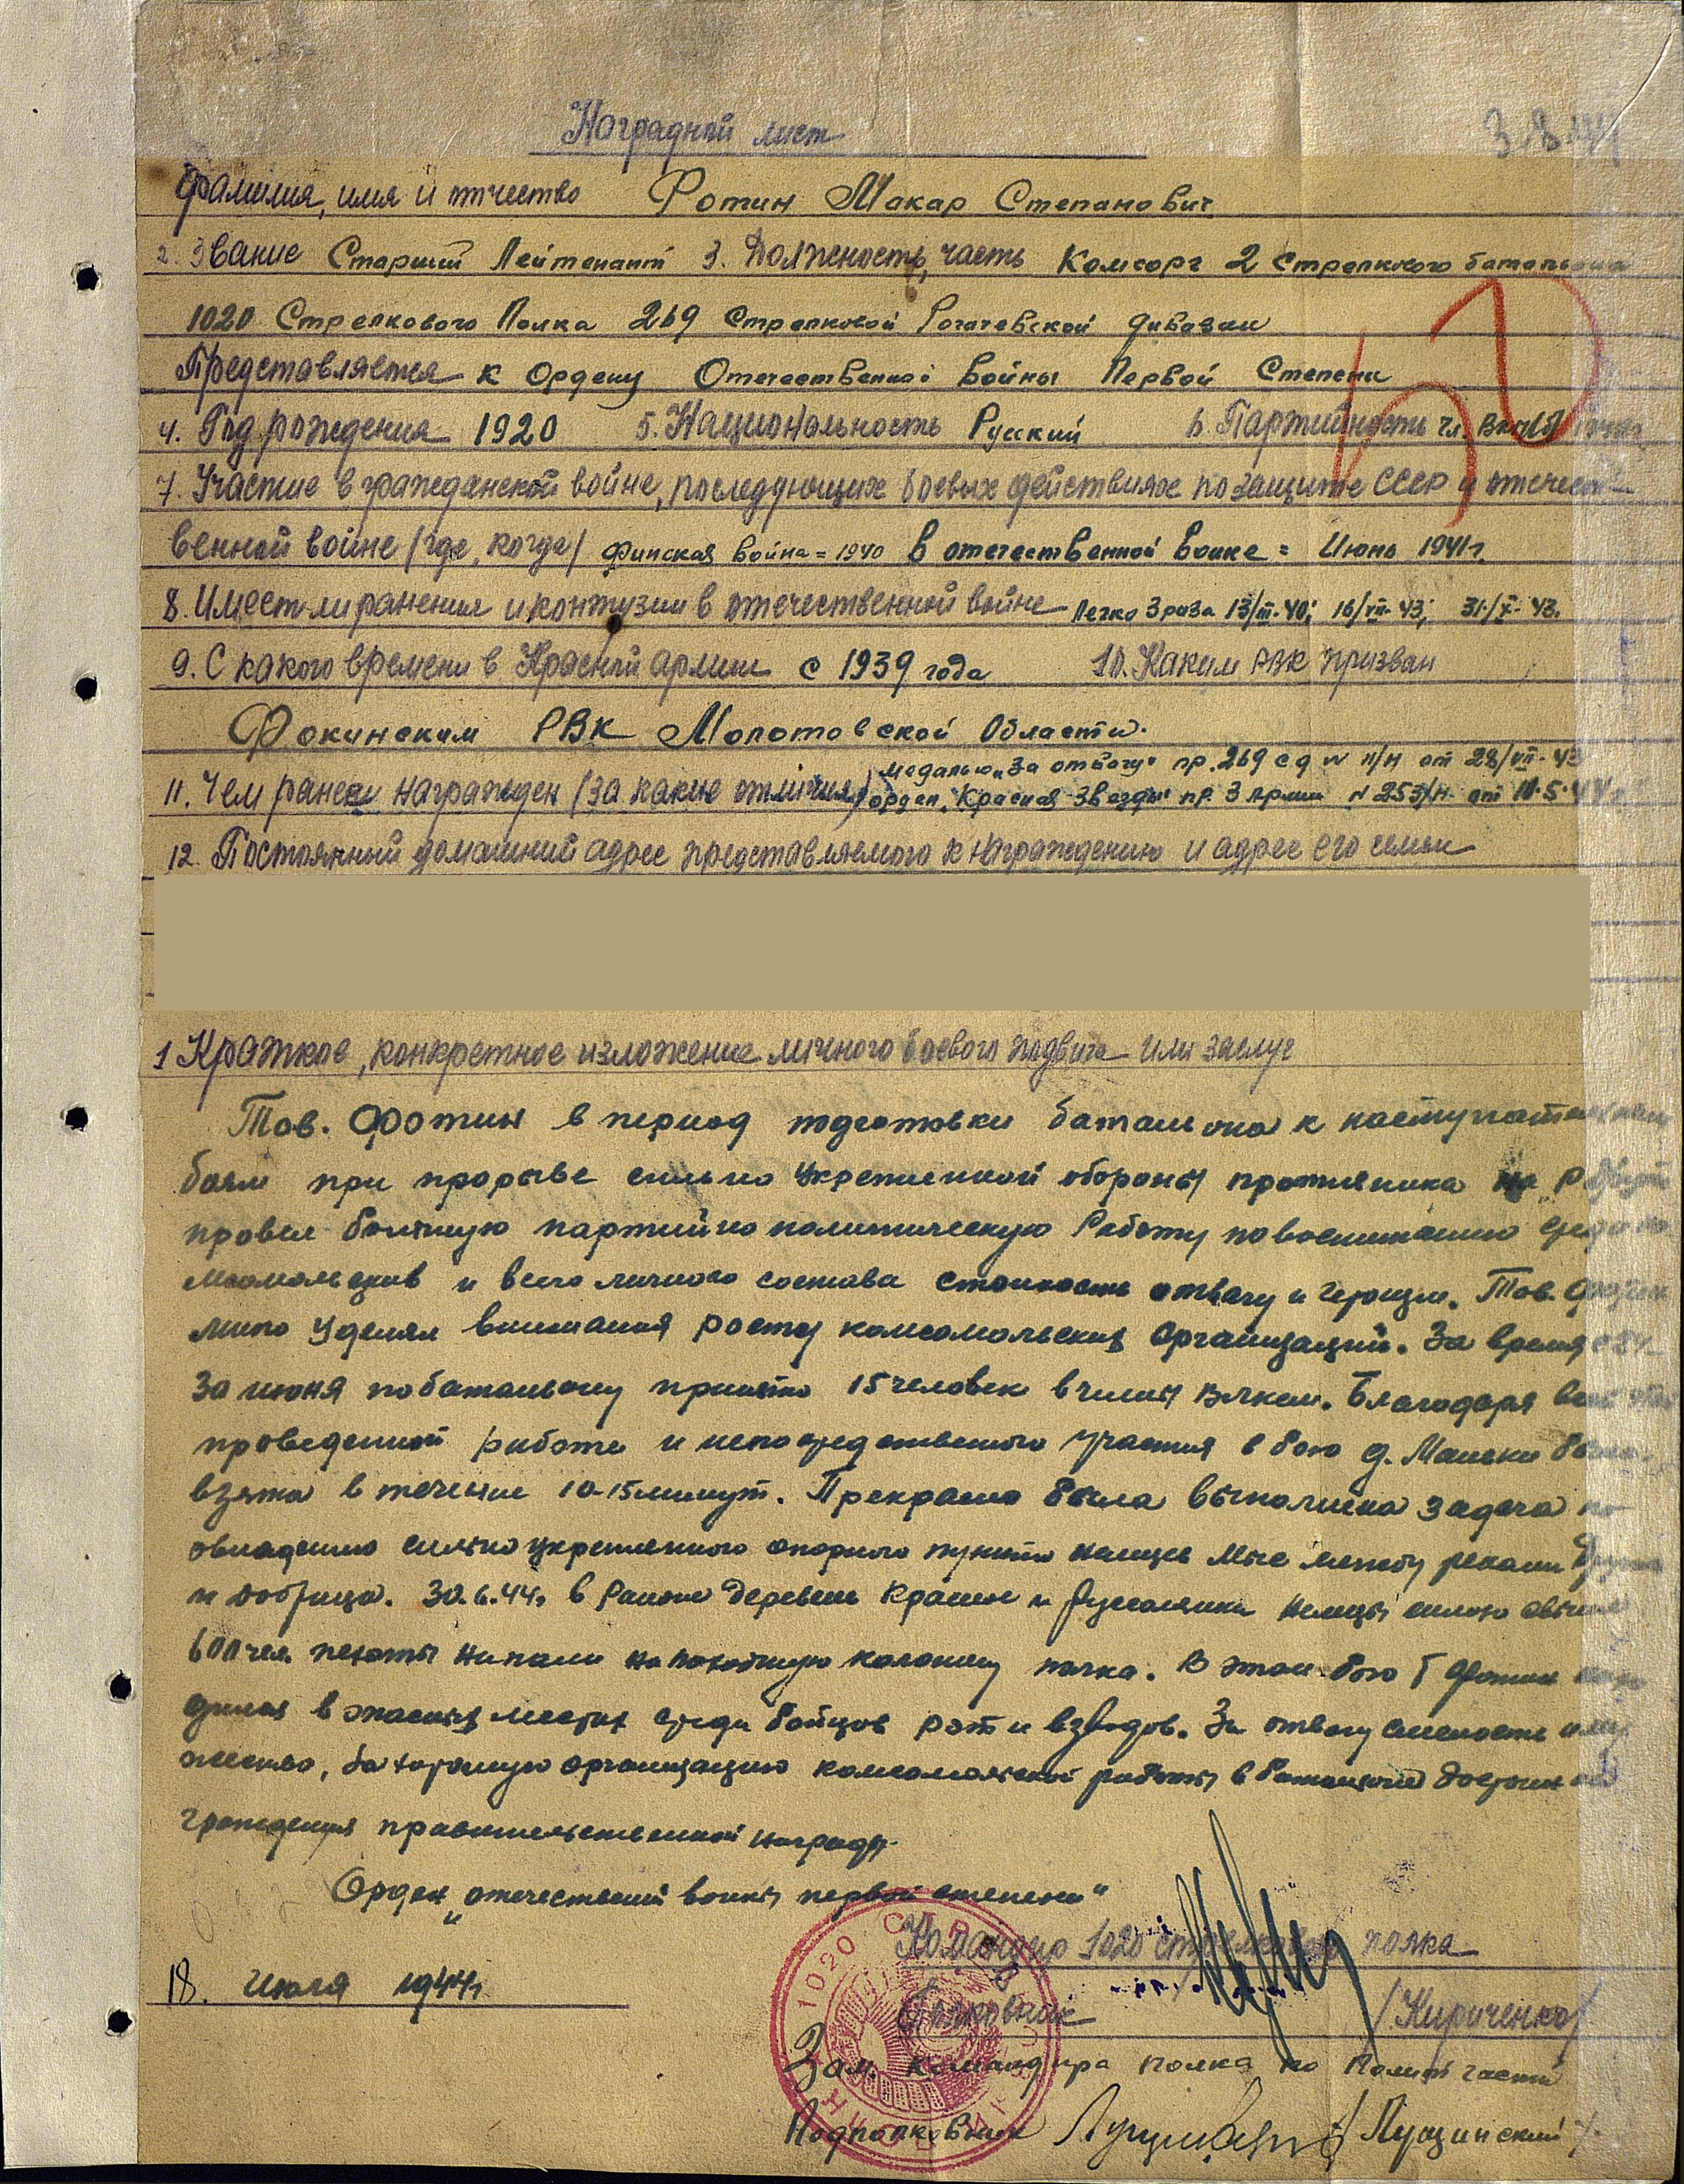 Наградной лист
Фамилия, имя и отчество Фотин Макар Степанович
2. Звание Старший Лейтенант 3. Должность, часть Комсорг 2 Стрелкового батальона
1020 Стрелкового Полка 269 Стрелковой Рогачевской дивизии
Представляется к Ордену Отечественной Войны Первой Степени
4. Год рождения 1920 5. Национальность Русский 6. Партийность чл. ВКП(б)
7. Участие в гражданской войне, последующих боевых действиях по защите СССР и отечест-
венной войне /где, когда/ Финская война = 1940 в отечественной воине = Июнь 1941 г.
8. Имеет ли ранения и контузии в отечественной войне Легко 3 раза 13/III-40; 16/VII-43; 31/X-43.
9. С какого времени в Красной армии с 1939 года 10. Каким РВК призван
Фокинским РВК Молотовской Области.
медалью „За отвагу" пр. 269 сд N п/н от 28/VII-43
11. Чем ранее награжден (за какие отличия) орден „Красная Звезда" пр. 3 Армии N 253/н от 10.5.44
12. Постоянный домашний адрес представляемого к награждению и адрес его семьи
1 Краткое, конкретное изложение личного боевого подвига или заслуг
Тов. Фотин в период подготовки батальона к наступательным
боям при прорыве сильно укрепленной обороны противника на р.
провел большую партийно политическую Работу по воспитанию среди ко
мсомольцев и всего личного состава стойкость отвагу и героизм. Тов. Фотин
много уделял внимания росту комсомольских организаций. За время
За июня по батальону принято 15 человек в члены ВЛКСМ. Благодаря всей
проведенной работе и непосредственного участия в бою д. была
взята в течение 10-15 минут. Прекрасно была выполнена задача по
овладению сильно укрепленного опорного пункта немцев между реками Друть
и Добрица. 30.6.44г. в районе деревень Красное и немцы силою свыше
600 чел. пехоты напали на походную колонну полка. В этом бою т Фотин нахо
дился в опасных местах среди бойцов рот и взводов. За отвагу смелость и му
жество, за хорошую организацию комсомольской работы в батальоне достоин на
граждения правительственной награды.
Орден „отечественной войны первой степени"
Командир 1020 стрелкового полка
18. Июля 1944г.
Полковник /Кириченко/
Зам. командира полка по Полит части
Подполковник /Лущинский/.